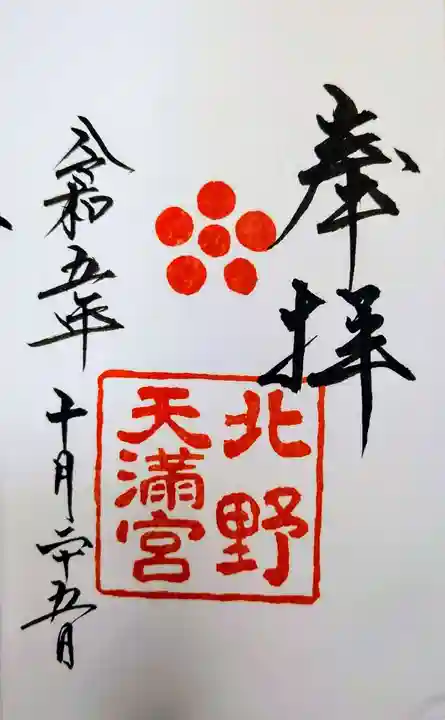 奉拝
北野
天満宮
令和五年 十月二十五日